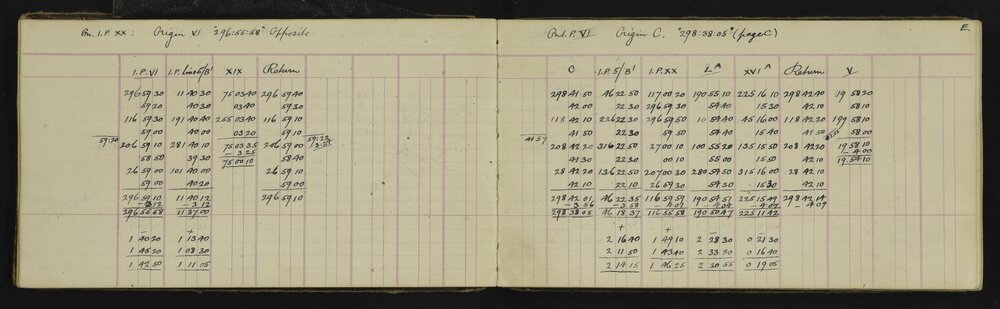 On. I.P. XX : Origin VI "296:55:58" Opposite
I.P. VI I.P. line 5/B' XIX Return
296 59 30 11 40 30 75 03 40 296 59 40
59 20 40 30 03 40 59 30
116 59 30 191 40 40 255 03 40 116 59 10
59 00 40 00 03 20 59 10
59:20 206 59 10 281 40 10 75 03 35 206 59 00 59:22
58 50 39 30 - 3 25 58 40
26 59 00 101 40 00 75 00 10 26 59 10
59 00 40 20 59 00
296 59 10 11 40 12 296 59 10
- 3 12 - 3 12
296 55 58 11 37 00
- +
1 40 20 1 13 40
1 45 20 1 08 30
1 42 50 1 11 05
On I.P. VI Origin C. "298:38:05" (page C) E.
C I.P. 5/B' I.P. XX L A XVI A Return V
298 41 50 46 22 50 117 00 20 190 55 10 225 16 10 298 42 40 19 58 20
42 00 22 30 296 59 30 54 40 15 30 42 10 58 10
118 42 10 226 22 30 296 59 50 10 54 40 45 16 00 118 42 20 199 58 10
41:57 41 50 22 30 59 50 54 40 15 40 41 50 58 00
208 42 20 316 22 50 27 00 10 100 55 20 135 15 50 208 42 20 19 58 10
41 30 22 30 00 10 55 00 15 50 42 10 - 4 00
28 42 20 136 22 50 207 00 30 280 54 50 315 16 00 28 42 10 19 54 10
42 10 22 10 26 59 30 54 30 15 30 42 10
298 42 01 46 22 35 116 59 59 190 54 51 225 15 49 298 42 14
- 3 56 - 3 58 - 4 01 - 4 04 - 4 07 - 4 09
298 38 05 46 18 37 116 55 58 190 50 47 225 11 42
+ + - -
2 16 40 1 49 10 2 28 30 0 21 30
2 11 50 1 43 40 2 33 20 0 16 40
2 14 15 1 46 25 2 30 55 0 19 05